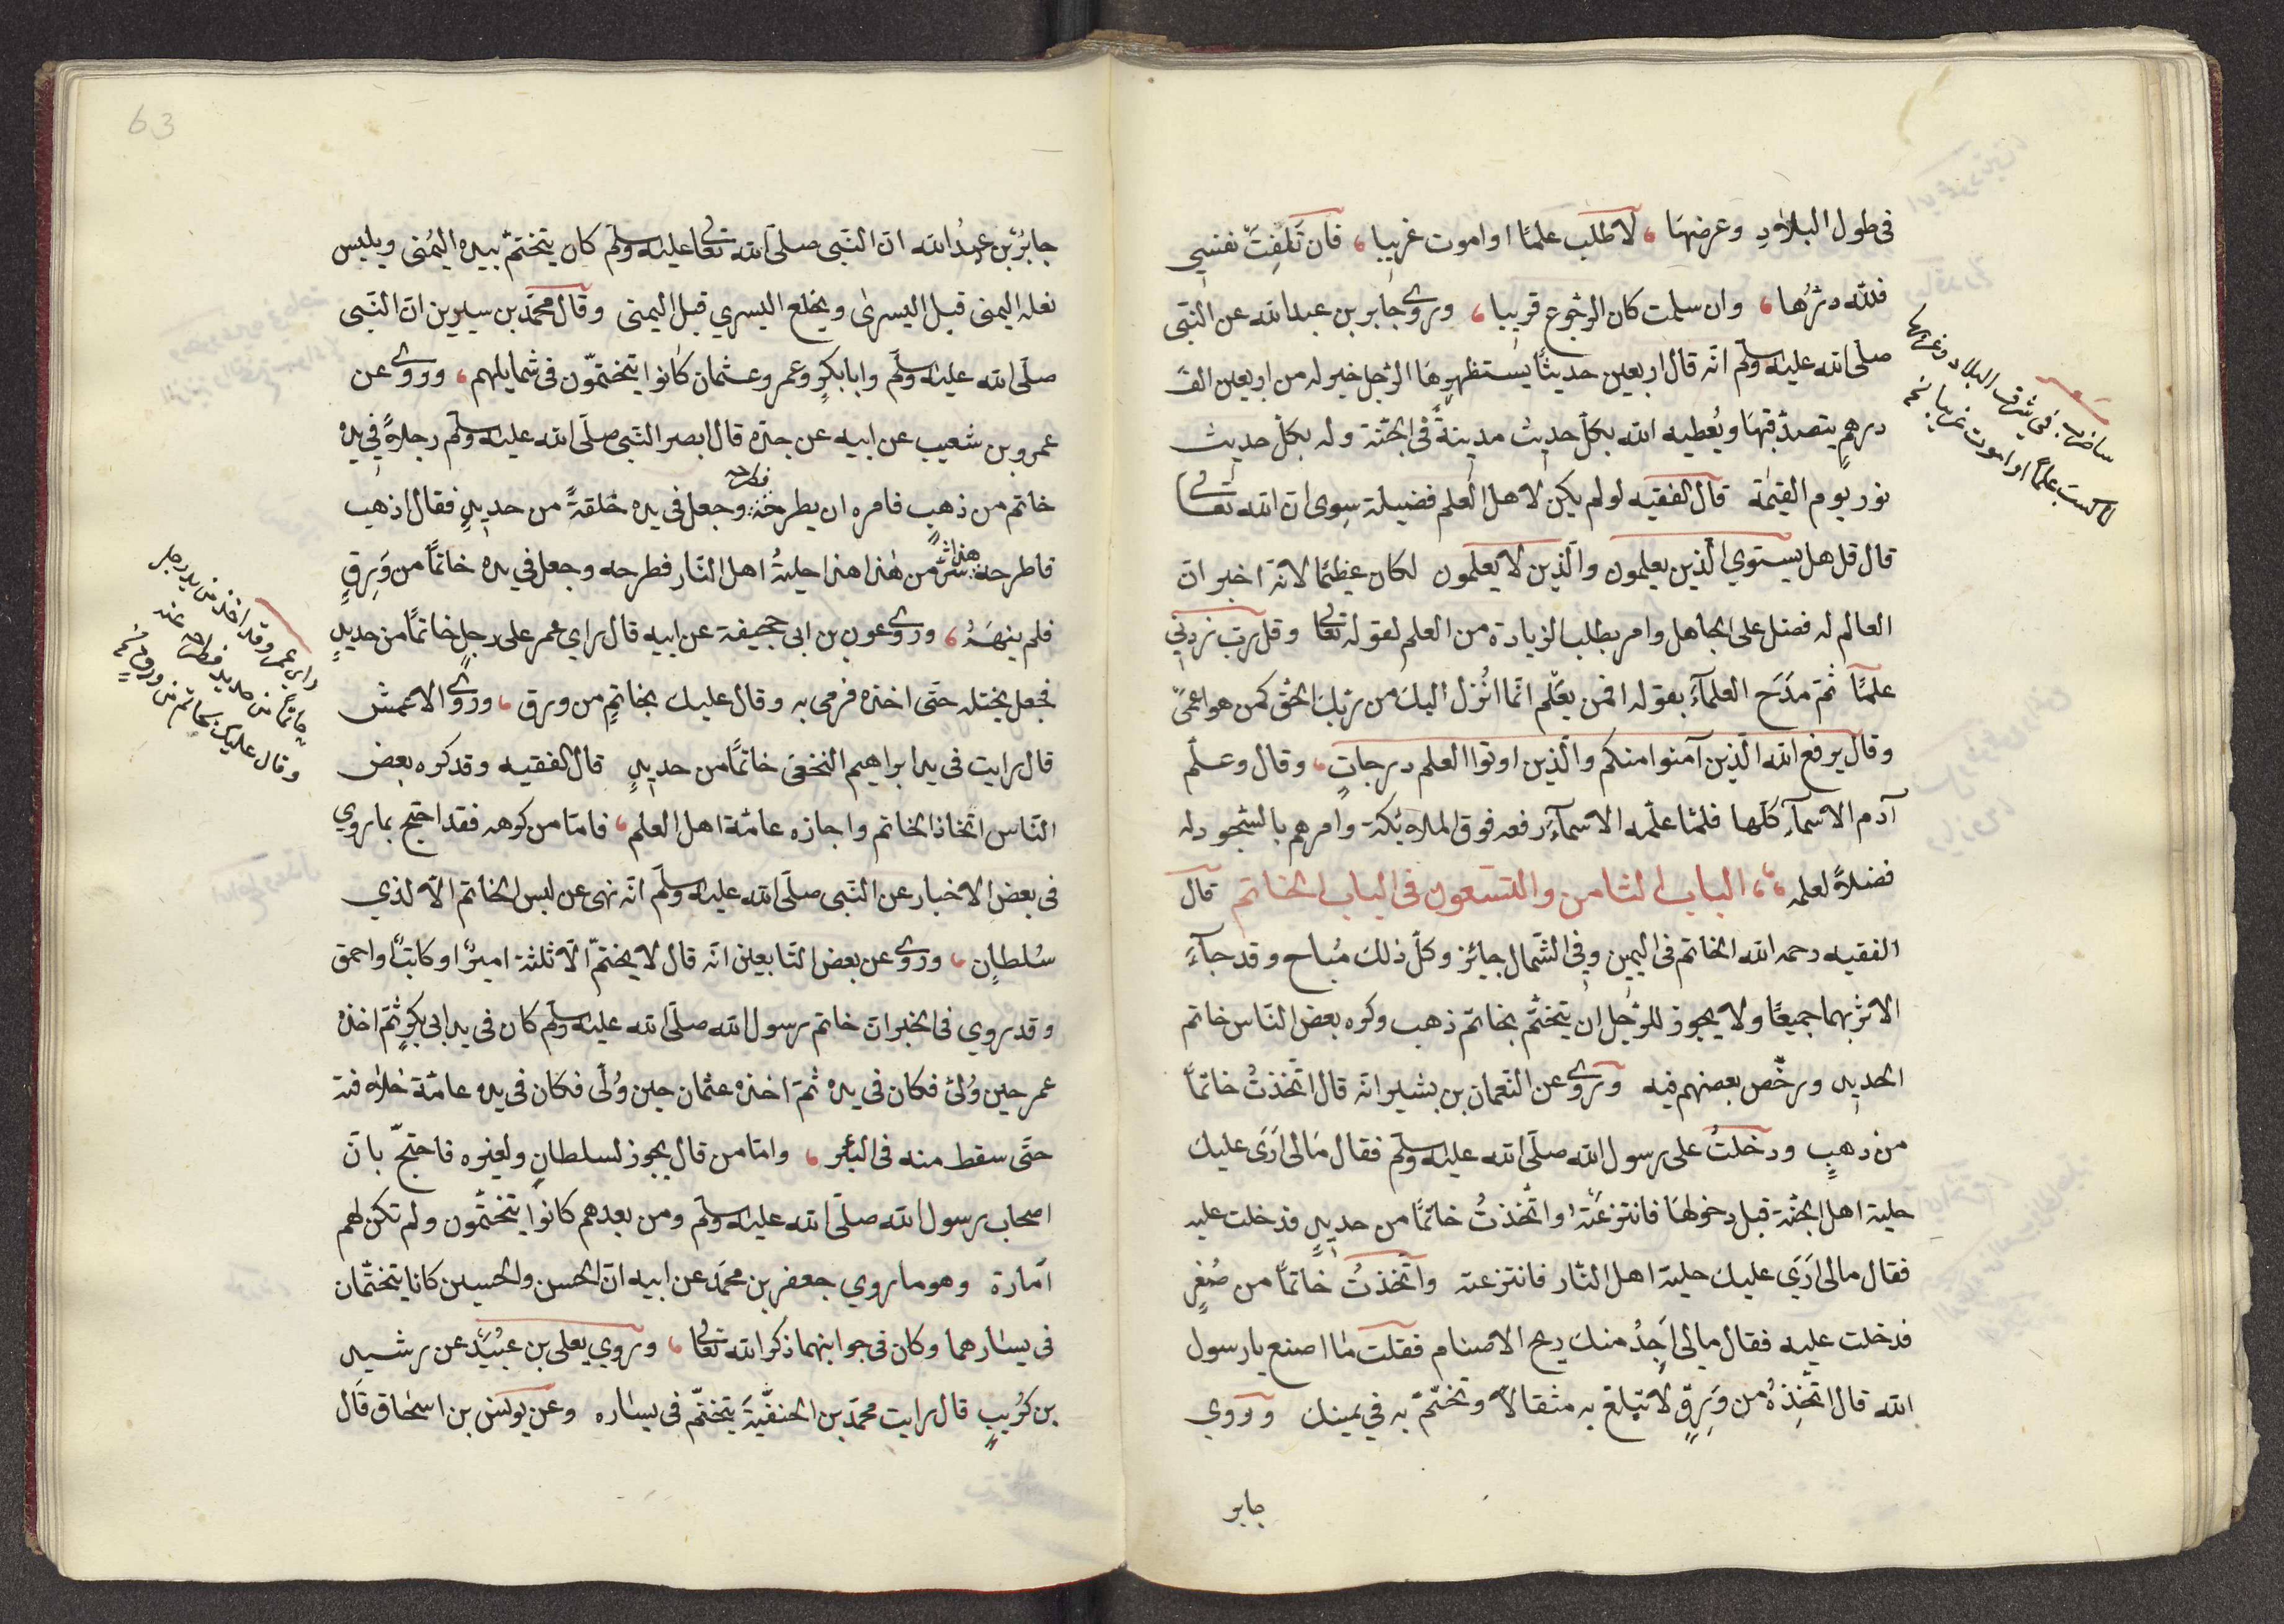 في طول البلاد وعرضها ، لاطلب علمًا او اموت غريبا ، فان تَلِفَتْ نفسي
فلله درُّها ، وان سلمت كان الرجوع قريبا ، وروى جابر بن عبدالله عن النبى
صلّى الله عليه وسلّم انّه قال اربعين حديثًا يستظهرها الرّجل خير له من اربعين الف
درهمٍ يتصدّق بها ويُعطيه الله بكلّ حديث مدينةً في الجنّة وله بكلّ حديث
نور يوم القيمة قال الفقيه لو لم يكن لاهل العلم فضيلة سوى ان الله تعالى
قال قل هل يستوي الّذين يعلمون والّذين لا يعلمون لكان عظيمًا لانّه اخبر ان
العالم له فضل على الجاهل وامر بطلب الزيادة من العلم لقوله تعالى وقل ربّ زدني
علمًا ثمّ مدَح العلمآءَ بقوله افمن يعلم انّما انُزل اليك من ربّك الحقّ كمن هو اعمىً
وقال يرفع الله الّذين آمنوا منكم والّذين اوتوا العلم درجاتٍ ، وقال وعلّم
آدم الاسمآء كلّها فلمّا علّمه الاسمآءَ رفعه فوق الملائكة وامرهم بالسّجود له
فضلاً لعلمه ،،، الباب الثامن والتسعون في الباب الخاتم قال
الفقيه رحمه الله الخاتم في اليمين وفي الشّمال جائز وكلّ ذلك مُباح وقد جآءَ
الاثر بهما جميعًا ولا يجوز للرّجل ان يتختّم بخاتم ذهب وكره بعض النّاس خاتم
الحديد ورخّص بعضهم فيه وروى عن النّعمان بن بشير انّه قال اتّخذتُ خاتماً
من ذهبٍ ودخلتُ على رسول الله صلّى الله عليه وسلّم فقال مالى اَرَى عليك
حلية اهل الجنّة قبل دخولها فانتزعته واتّخذتُ خاتمًا من حديدٍ فدخلت عليه
فقال مالى اَرَى عليك حلية اهل النّار فانتزعته واتّخذتُ خاتماً من صُفرٍ
فدخلت عليه فقال مالى اَجِدُ منك ريح الاصنام فقلت ما اصنع يا رسول
الله قال اتّخِذهُ من وَرِقٍ لا تبلغ به مثقالاً وتختّم به في يمينك وروي
جابر
شعر
ساضرب في شرق البلاد وغربها
لاكسب علمًا او اموت غريبا نخ
جابرُ بن عبدُ الله انّ النّبى صلّى الله تعالى عليه وسلّم كان يتختمّ بيده اليُمنى ويلبس
نعله اليمنى قبل اليسرى ويخلع اليسري قبل اليمنى وقال محمّد بن سيرين انّ النّبى
صلّى الله عليه وسلّم وابابكرٍ وعمر وعثمان كانوا يتختّمون في شمايلهم ، وروى عن
عمرو بن شعيب عن ابيه عن جدّه قال ابصر النّبى صلّى الله عليه وسلّم رجلاً في يده
خاتم من ذهبٍ فامره ان يطرحه وجعل في يده حَلقةً من حديدٍ فقال اذهب
فطرحه
فاطرحه شرٌّ من هذا هذا حليةُ اهل النّار فطرحه وجعل في يده خاتماً من وَرِقٍ
هذا شرٌّ
فلم ينهَهُ ، وروى عون بن ابى جحيفة عن ابيه قال راي عمر على رجلٍ خاتمًا من حديدٍ
فجعل يختله حتّى اخذه فرمى به وقال عليك بخاتمٍ من ورق ، وروى الاعمش
قال رايت في يد ابراهيم النخعى خاتمًا من حديدٍ قال الفقيه وقد كره بعض
النّاس اتّخاذ الخاتم واجازه عامّة اهل العلم ، فامّا من كرهه فقد احتج بما روي
في بعض الاخبار عن النّبى صلّى الله عليه وسلّم انّه نهى عن لبس الخاتم الّا لذي
سُلطانٍ ، وروى عن بعض التّابعين انّه قال لا يختمّ الّا ثلثة اميرٌ او كاتبٌ او احمق
وقد روي في الخبر ان خاتم رسول الله صلّى الله عليه وسلّم كان في يد ابى بكرٍ ثمّ اخذه
عمر حين وُلىّ فكان في يده ثمّ اخذه عثمان حين وُلّى فكان في يده عامّة خلافته
حتّى سقط منه في البئر ، وامّا من قال يجوز لسلطانٍ ولغيره فاحتجّ بانّ
اصحاب رسول الله صلّى الله عليه وسلّم ومن بعدهم كانوا يتختّمون ولم تكن لهم
اَمارة وهو ما روي جعفر بن محمّد عن ابيه انّ الحسن والحسين كانا يتختّمان
في يسارهما وكان في جوابنهما ذكر الله تعالى ، وروي يعلى بن عبُيَد عن رشيد
بن كُريبٍ قال رايت محمّد بن الحنفيّةَ يتختّم في يساره وعن يونس بن اسحاق قال
راى عمر وقد اخذ من يد رجل
خاتماً من حديد فطرحه عنه
وقال عليك بخاتم من ورقٍ نخ
63